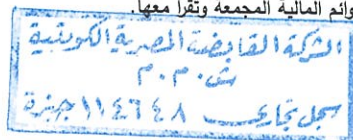 وائم المالية المجمعة وتقرأ معها.
الشركة القابضة المصرية الكويتية
ش.م.م
سجل تجارى ١١٤٦٤٨ جيزة